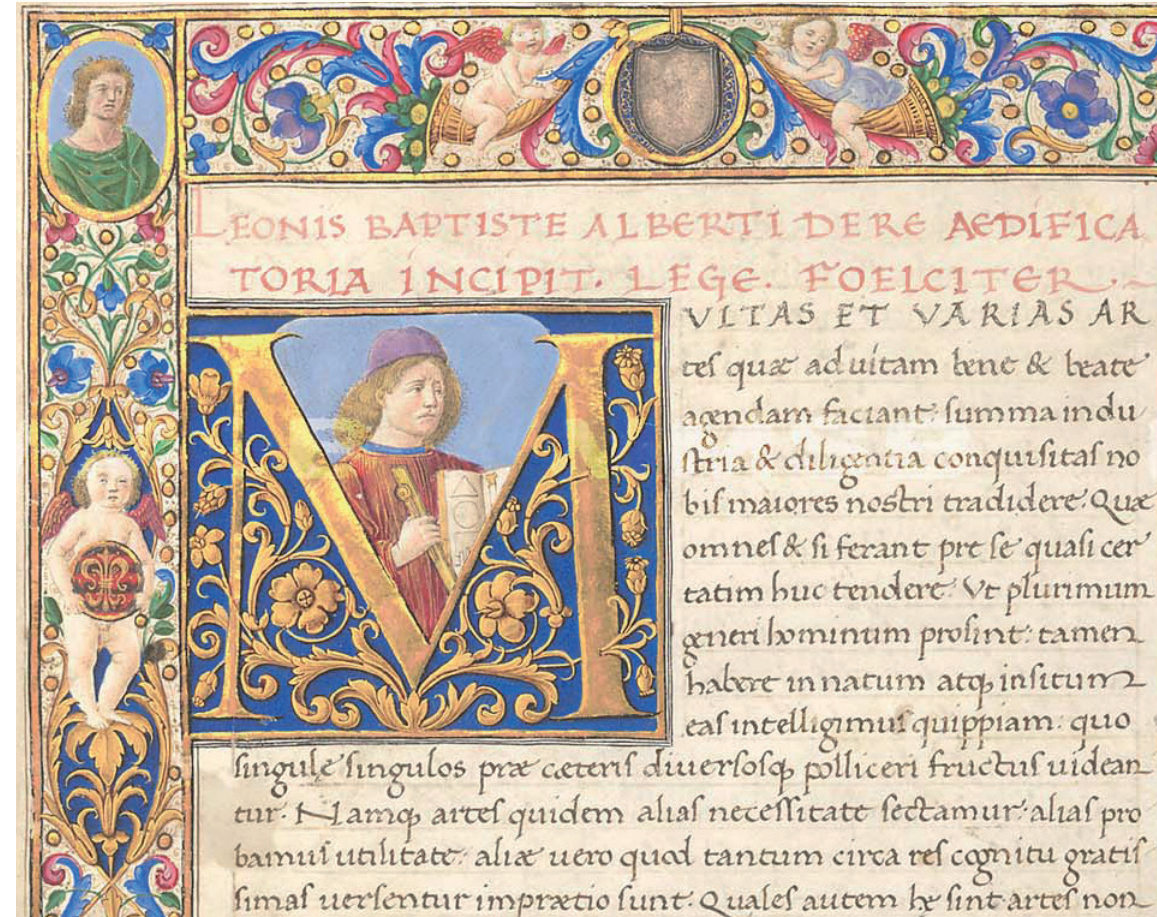 LEONIS BAPTISTE ALBERTI DERE AEDIFICA
TORIA INCIPIT. LEGE. FOELCITER.
MVLTAS ET VARIAS AR
tes quæ ad uitam bene & beate
agendam faciant: summa indu
stria & diligentia conquisitas no
bis maiores nostri tradidere. Quæ
omnes & si ferant pre se quasi cer
tatim huc tendere. Vt plurimum
generi hominum prosint: tamen
habere innatum atq; insitum
eas intelligimus quippiam. quo
singulę singulos præ cæteris diuersosq; polliceri fructus uidean
tur. Namq; artes quidem alias necessitate sectamur: alias pro
bamus utilitate: aliæ uero quod tantum circa res cognitu gratis
simas uersentur imprætio sunt. Quales autem hę sint artes non